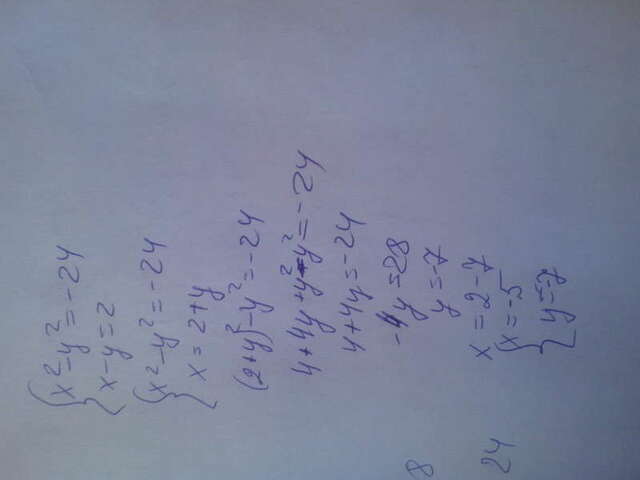 { x² - y² = -24
x - y = 2
{ x² - y² = -24
x = 2 + y
(2+y)² - y² = -24
4 + 4y + y² - y² = -24
4 + 4y = -24
-4y = 28
y = -7
x = 2 - 7
{ x = -5
y = -7
8
24